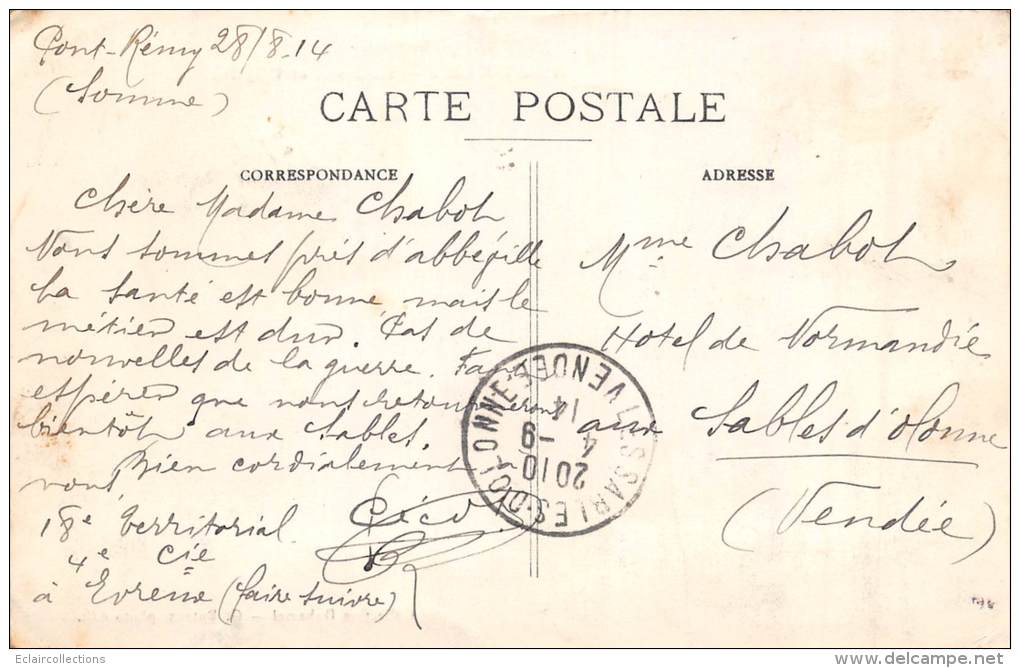 Pont-Rémy 28/8.14
(Somme)
CARTE POSTALE
CORRESPONDANCE
ADRESSE
Chère Madame Chabot
Nous sommes près d'abbéville
La santé est bonne mais le
métier est dur. Pas de
nouvelles de la guerre.
espérer que nous retournerons
bientôt aux Sables.
Bien cordialement à
vous
18e territorial
4e Cie
à Evreux (faire suivre)
Mme Chabot
Hotel de Normandie
aux Sables d'Olonne
(Vendée)
LES SABLES-D'OLONNE VENDEE
2010
4 -9
14
Eclaircollections